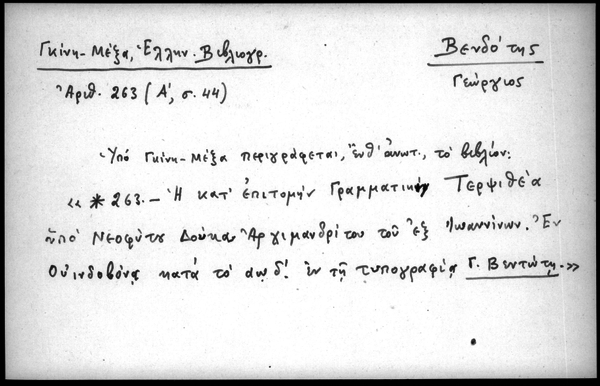 Γκίνη-Μέξα, Ἑλλην. Βιβλιογρ.
Βενδότης
Γεώργιος
Ἀριθ. 263 (Α', σ. 44)
Ὑπό Γκίνη-Μέξα περιγράφεται, ἔνθ' ἀνωτ., τό βιβλίον:
«* 263.- Ἡ κατ' ἐπιτομήν Γραμματική Τερψιθέα
ὑπό Νεοφύτου Δούκα Ἀρχιμανδρίτου τοῦ ἐξ Ἰωαννίνων. Ἐν
Οὐινδοβόνᾳ κατά τό αωδ'. ἐν τῇ τυπογραφίᾳ Γ. Βεντώτη.»